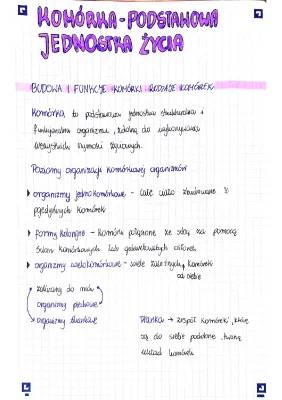 KOMÓRKA - PODSTAWOWA
JEDNOSTKA ŻYCIA
BUDOWA I FUNKCJE KOMÓRKI. RODZAJE KOMÓREK
Komórka, to podstawowa jednostka strukturalna i
funkcjonalna organizmu, zdolną do wykonywania
wszystkich czynności życiowych.
Poziomy organizacji komórkowej organizmów
organizmy jednokomórkowe - całe ciało zbudowane z
pojedynczych komórek
formy kolonijne - komórki połączone ze sobą za pomocą
ścian komórkowych lub galaretowatych otoczek
organizmy wielokomórkowe - wiele zależnych komórek
od siebie
zaliczamy do nich
organizmy plechowe
organizmy tkankowe
Tkanka → zespół komórek, które
są do siebie podobne, tworzą
układ komórek